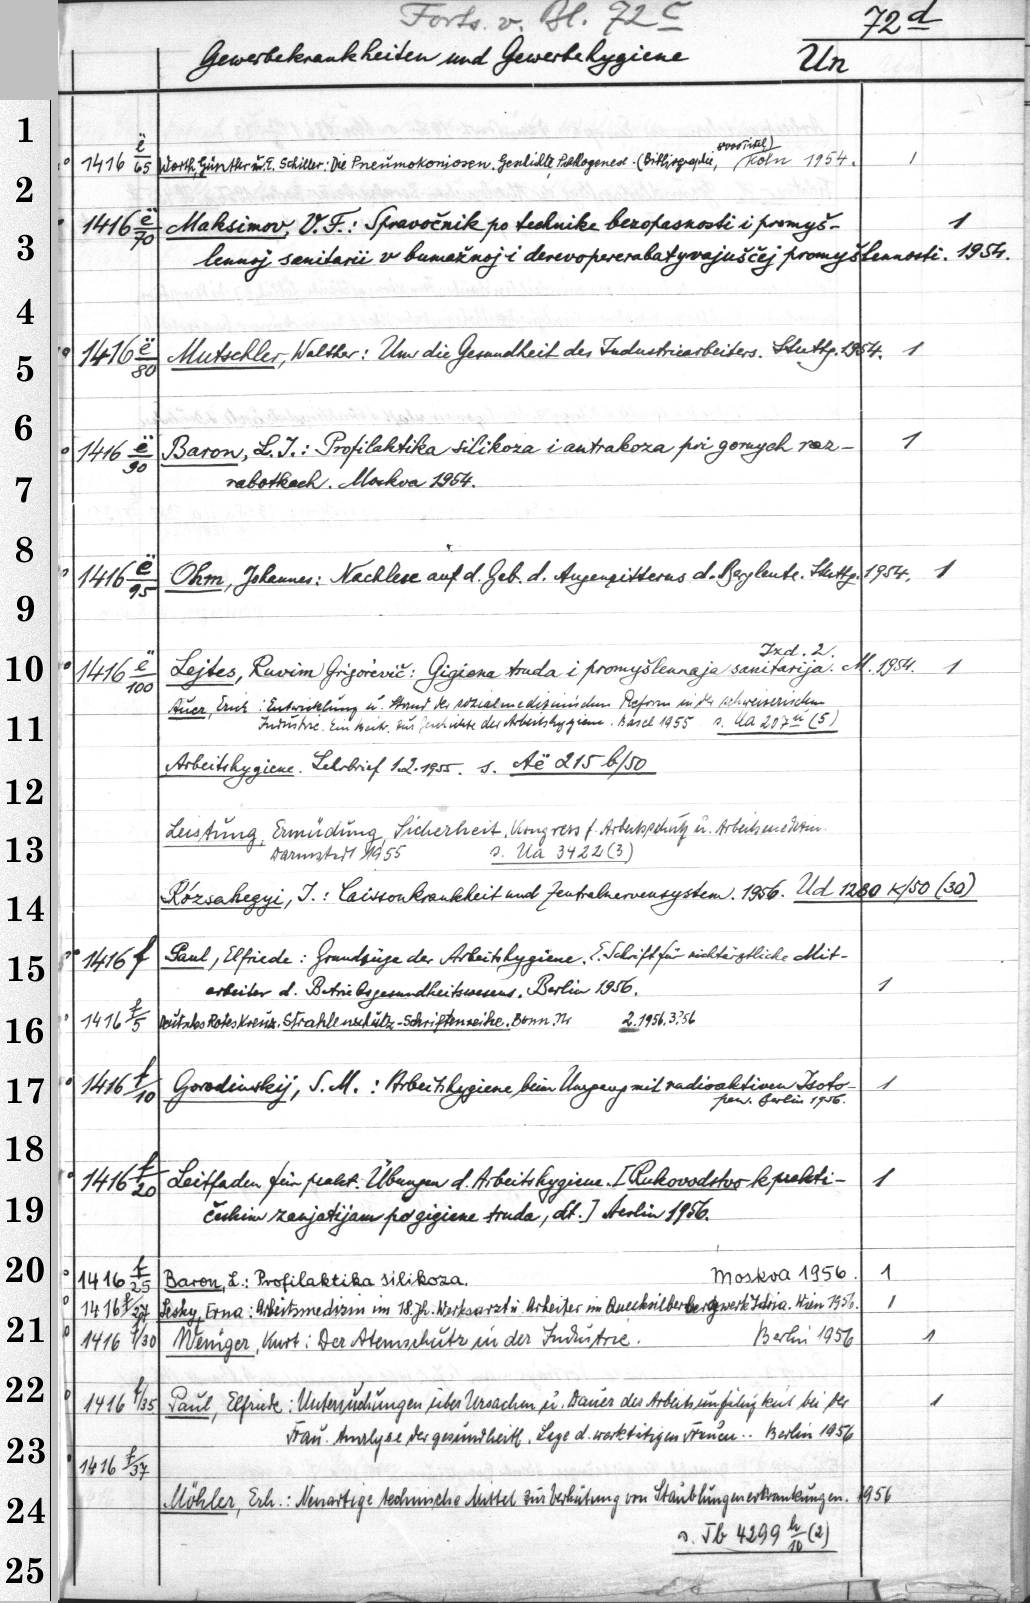 Forts. v. Bl. 72 c
72 d
Gewerbekrankheiten und Gewerbehygiene Un
1
1416 ë/65 Worth, Günther u. E. Schiller: Die Pneumokoniosen. Geschichte, Pathogenese. (Bibliographie, Köln 1954. 1
2
1416 ë/70 Maksimov, V. F.: Spravočnik po technike bezopasnosti i promyš- 1
3
lennoj sanitarii v bumažnoj i derevopererabatyvajuščej promyšlennosti. 1954.
4
1416 ë/80 Mutschler, Walther: Um die Gesundheit des Industriearbeiters. Stuttg. 1954. 1
5
6
1416 ë/90 Baron, L. I.: Profilaktika silikoza i antrakoza pri gornych raz- 1
7
rabotkach. Moskva 1954.
8
1416 ë/95 Ohm, Johannes: Nachlese auf d. Geb. d. Augenzitterns d. Bergleute. Stuttg. 1954. 1
9
Izd. 2.
10
1416 ë/100 Lejtes, Ruvim Grigorevič: Gigiena truda i promyšlennaja sanitarija. M. 1954. 1
Auer, Erich: Entwicklung u. Stand der sozialmedizinischen Reform in der schweizerischen
11
Industrie. Ein Beitr. zur Geschichte der Arbeitshygiene. Basel 1955 s. Ua 207 u (5)
Arbeitshygiene. Lehrbrief 1.2. 1955. s. Aë 215 b/50
12
Leistung, Ermüdung, Sicherheit. Kongress f. Arbeitsschutz u. Arbeitsmedizin.
13
Darmstadt 1955 s. Ua 3422 (3)
14
Rózsahegyi, I.: Caissonkrankheit und Zentralnervensystem. 1956. Ud 1280 k/50 (30)
15
1416 f Paul, Elfriede: Grundzüge der Arbeitshygiene. E. Schrift für nichtärztliche Mit-
arbeiter d. Betriebsgesundheitswesens. Berlin 1956. 1
16
1416 f/5 Deutsches Rotes Kreuz. Strahlenschutz-Schriftenreihe. Bonn. Nr 2. 1956. 3. 56
17
1416 f/10 Gorodinskij, S. M.: Arbeitshygiene beim Umgang mit radioaktiven Isoto- 1
pen. Berlin 1956.
18
1416 f/20 Leitfaden für prakt. Übungen d. Arbeitshygiene. [Rukovodstvo k prakti- 1
19
českim zanjatijam po gigiene truda, dt.] Berlin 1956.
20
1416 f/25 Baron, L.: Profilaktika silikoza. Moskva 1956. 1
1416 f/27 Lesky, Erna: Arbeitsmedizin im 18. Jh. Werksarzt u. Arbeiter im Quecksilberbergwerk Idria. Wien 1956. 1
21
1416 f/30 Weniger, Kurt: Der Atemschutz in der Industrie. Berlin 1956 1
22
1416 f/35 Paul, Elfriede: Untersuchungen über Ursachen u. Dauer der Arbeitsunfähigkeit bei der 1
Frau. Analyse der gesundheitl. Lage d. werktätigen Frauen.. Berlin 1956
23
1416 f/37
24
Möhler, Erh.: Neuartige technische Mittel zur Verhütung von Staublungenerkrankungen. 1956
s. Tb 4299 h/10 (2)
25